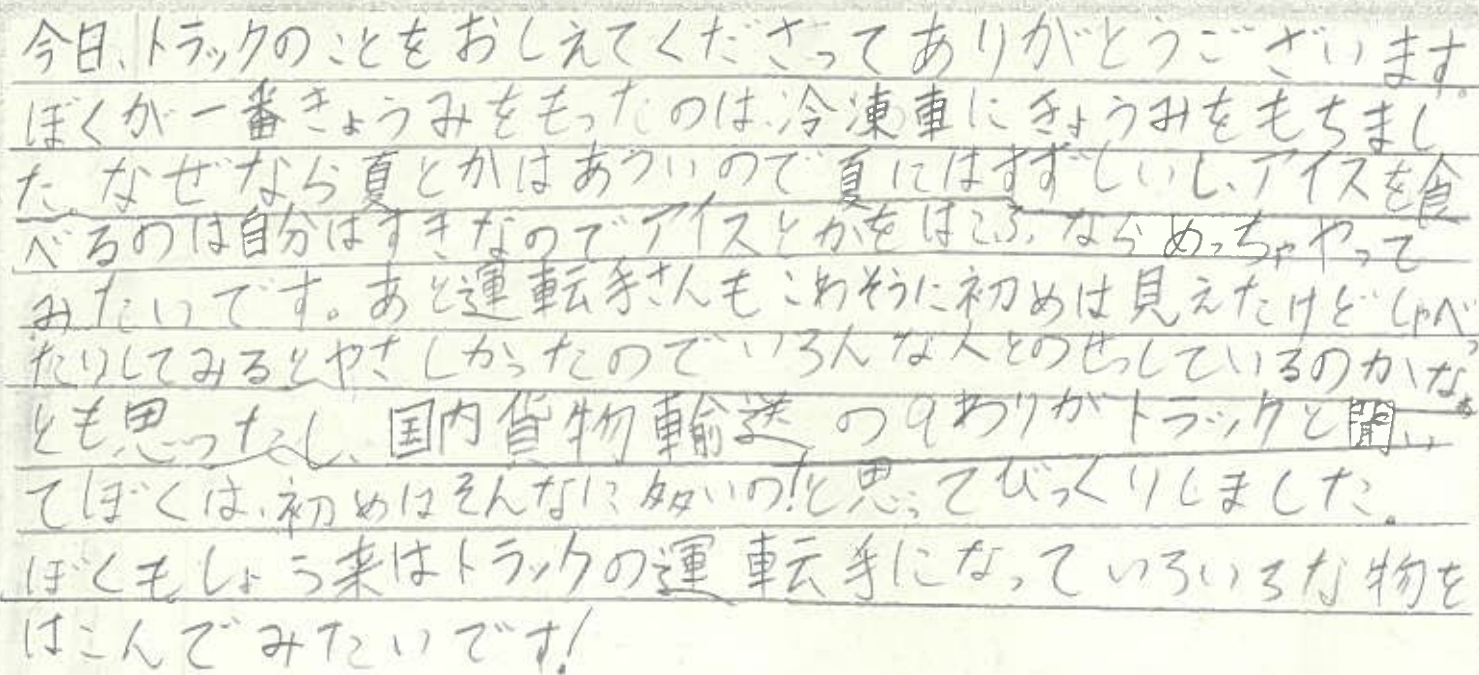 今日、トラックのことをおしえてくださってありがとうございます。
ぼくが一番きょうみをもったのは、冷凍車にきょうみをもちまし
た。なぜなら夏とかはあついので夏にはすずしいし、アイスを食
べるのは自分はすきなのでアイスとかをはこぶならめっちゃやって
みたいです。あと運転手さんもこわそうに初めは見えたけどしゃべっ
たりしてみるとやさしかったのでいろんな人とのせっしているのかなぁ
とも思ったし、国内貨物輸送の9わりがトラックと聞い
てぼくは、初めはそんなに多いの!と思ってびっくりしました。
ぼくもしょう来はトラックの運転手になっていろいろな物を
はこんでみたいです!